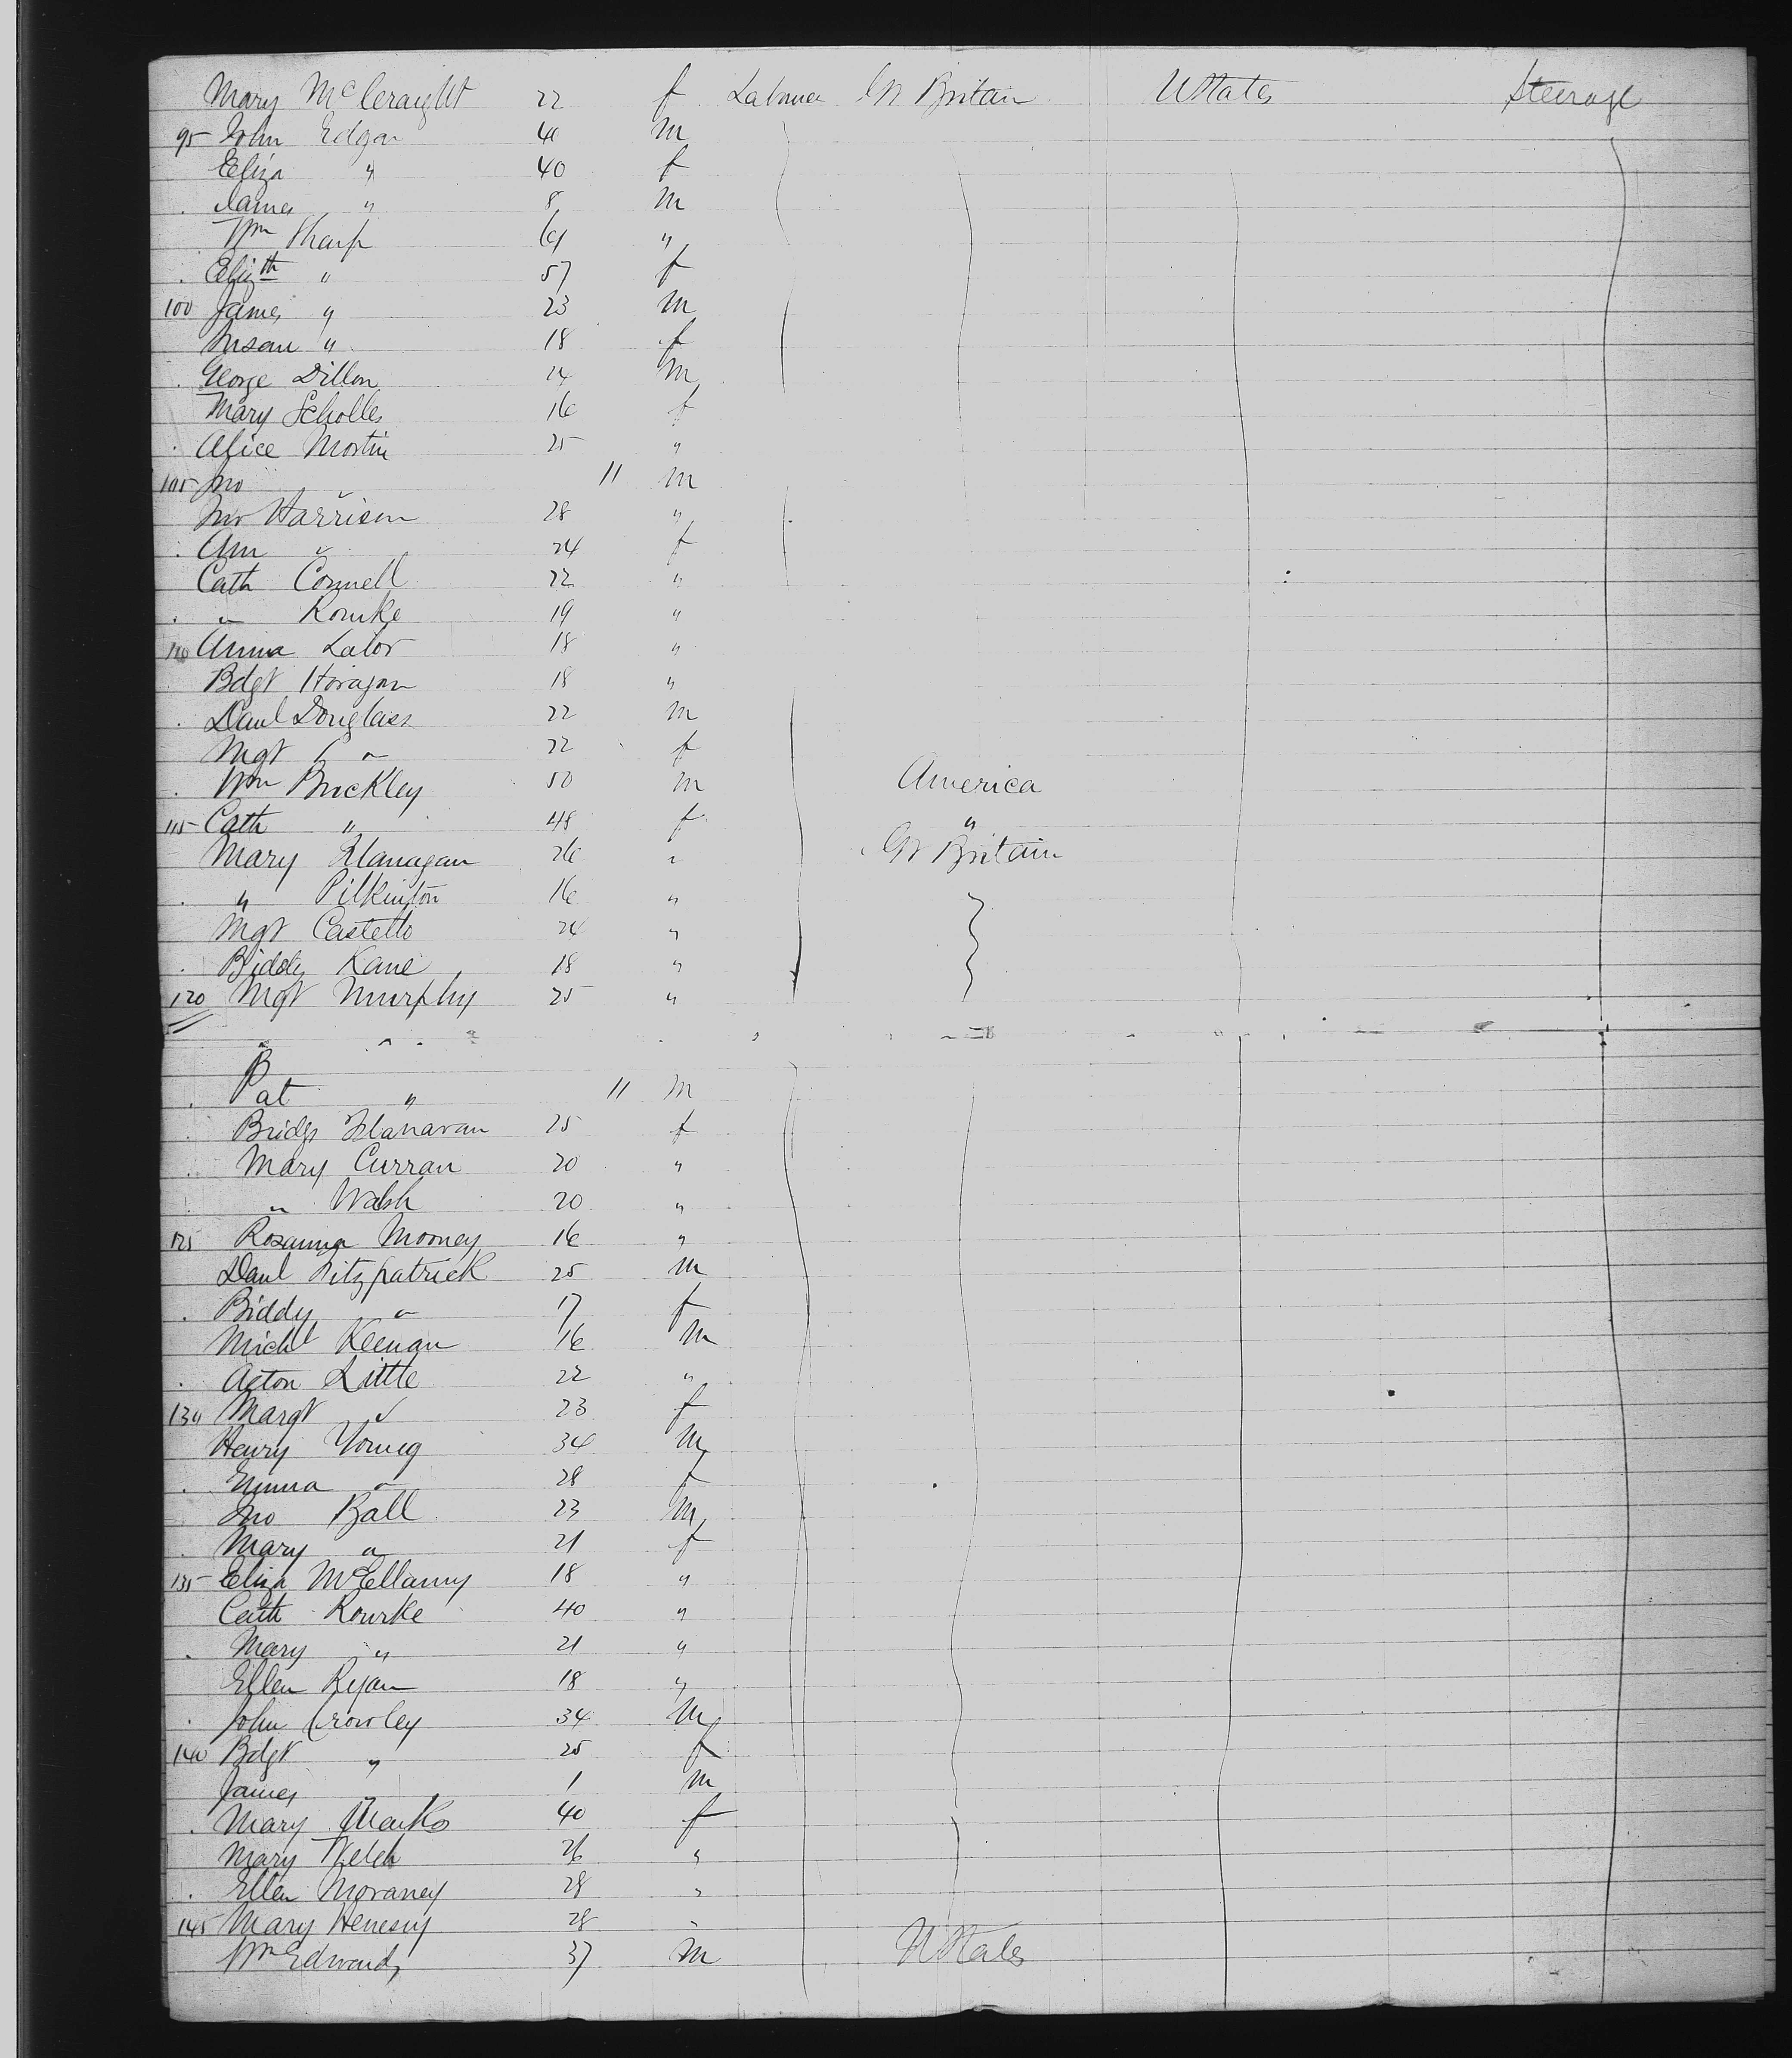 Mary McCraight 22 f Labourer Gt Britain UStates Steerage
95 John Edgar 40 m
Eliza " 40 f
James " 8 m
Wm Sharp 61 "
Elizth " 57 f
100 James " 23 m
Susan " 18 f
George Dillon 14 m
Mary Scholles 16 f
Alice Mostin 25 "
105 Jno " 11 m
Jno Harrison 28 "
Ann " 24 f
Cath Connell 22 "
" Rourke 19 "
110 Anna Lalor 18 "
Bdgt Horagan 18 "
Danl Douglass 22 m
Mgt " 22 f
Wm Buckley 50 m America
115 Cath " 48 f "
Mary Flanagan 26 " Gt Britain
" Pilkington 16 "
Mgt Castello 24 "
Biddy Kane 18 "
120 Mgt Murphy 25 "
Pat " 11 m
Bridgt Flanavan 25 f
Mary Curran 20 "
" Walsh 20 "
125 Rosanna Mooney 16 "
Danl Fitzpatrick 25 m
Biddy " 17 f
Michl Keenan 16 m
Acton Little 22 "
130 Margt " 23 f
Henry Young 34 m
Emma " 28 f
Jno Ball 23 m
Mary " 21 f
135 Eliza McEllanny 18 "
Cath Rourke 40 "
Mary " 21 "
Ellen Ryan 18 "
John Crowley 34 m
140 Bdgt " 25 f
James " 1 m
Mary Marks 40 f
Mary Welch 26 "
Ellen Moraney 28 "
145 Mary Henesny 28 "
Wm Edwards 37 m UStates